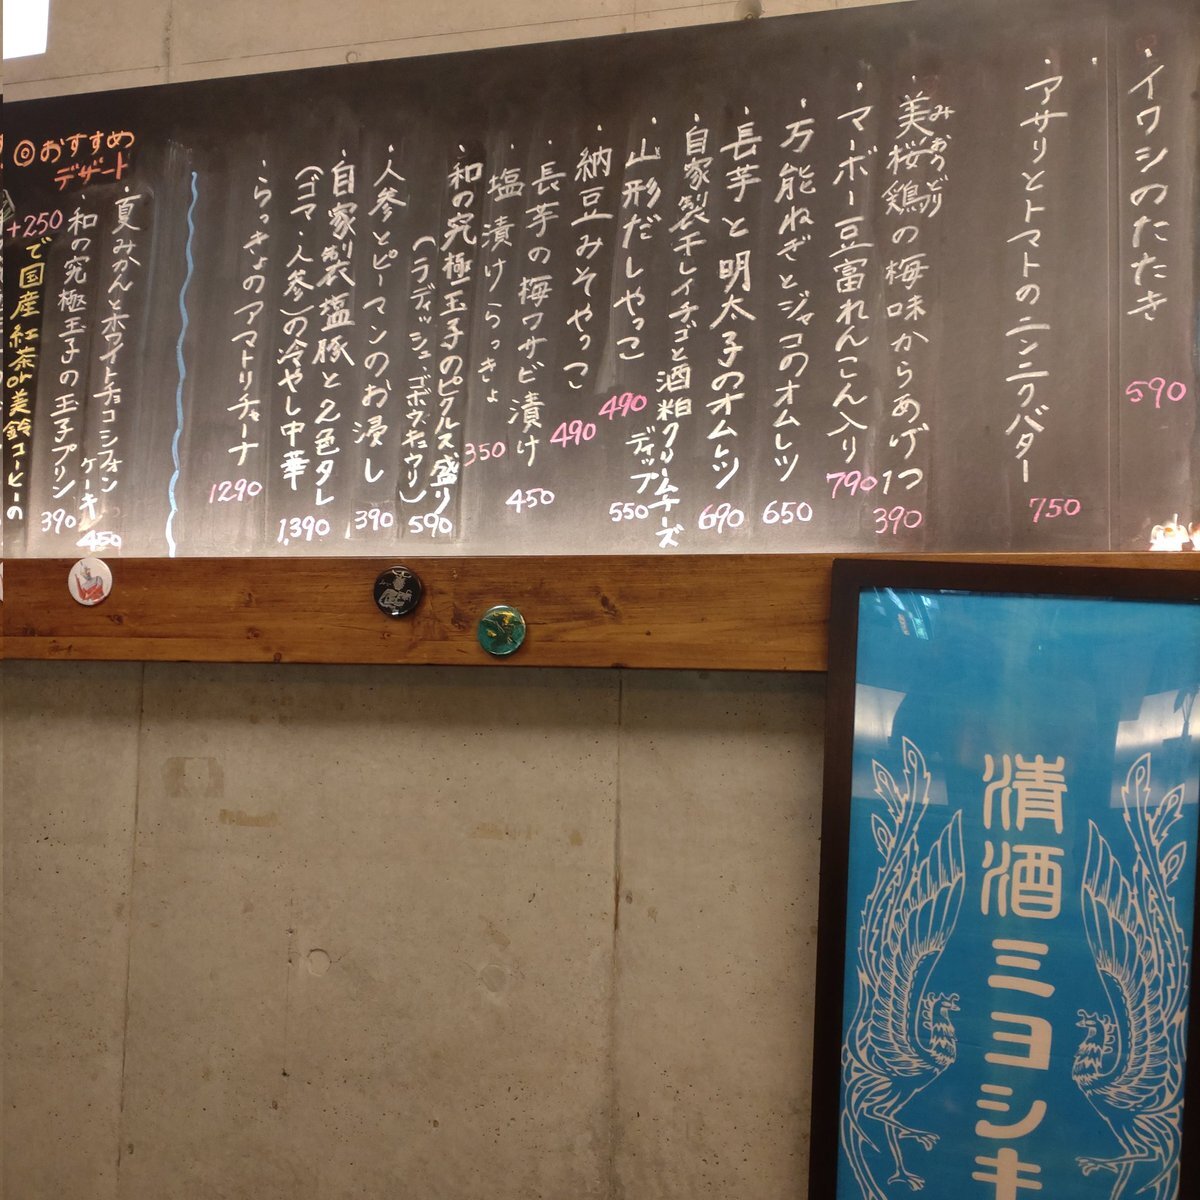 ・イワシのたたき 590
・アサリとトマトのニンニクバター 750
・美桜鶏の梅味からあげ1つ 390
みおうどり
・マーボー豆富れんこん入り 790
・万能ねぎとジャコのオムレツ 650
・長芋と明太子のオムレツ 690
・自家製干しイチゴと酒粕クリームチーズ
ディップ 550
・山形だしやっこ 490
・納豆みそやっこ 490
・長芋の梅ワサビ漬け 450
・塩漬けらっきょ 350
・和の究極玉子のピクルス盛り
(ラディッシュ、ゴボウ、キュウリ) 590
・人参とピーマンのお浸し 390
・自家製塩豚と2色タレ
(ゴマ・人参)の冷やし中華 1,390
・らっきょのアマトリチャーナ 1290
◎おすすめ
デザート
・夏みかんとホワイトチョコシフォン
ケーキ 450
・和の究極玉子の玉子プリン 390
+250で国産紅茶or美鈴コーヒーの
清酒ミヨシキ